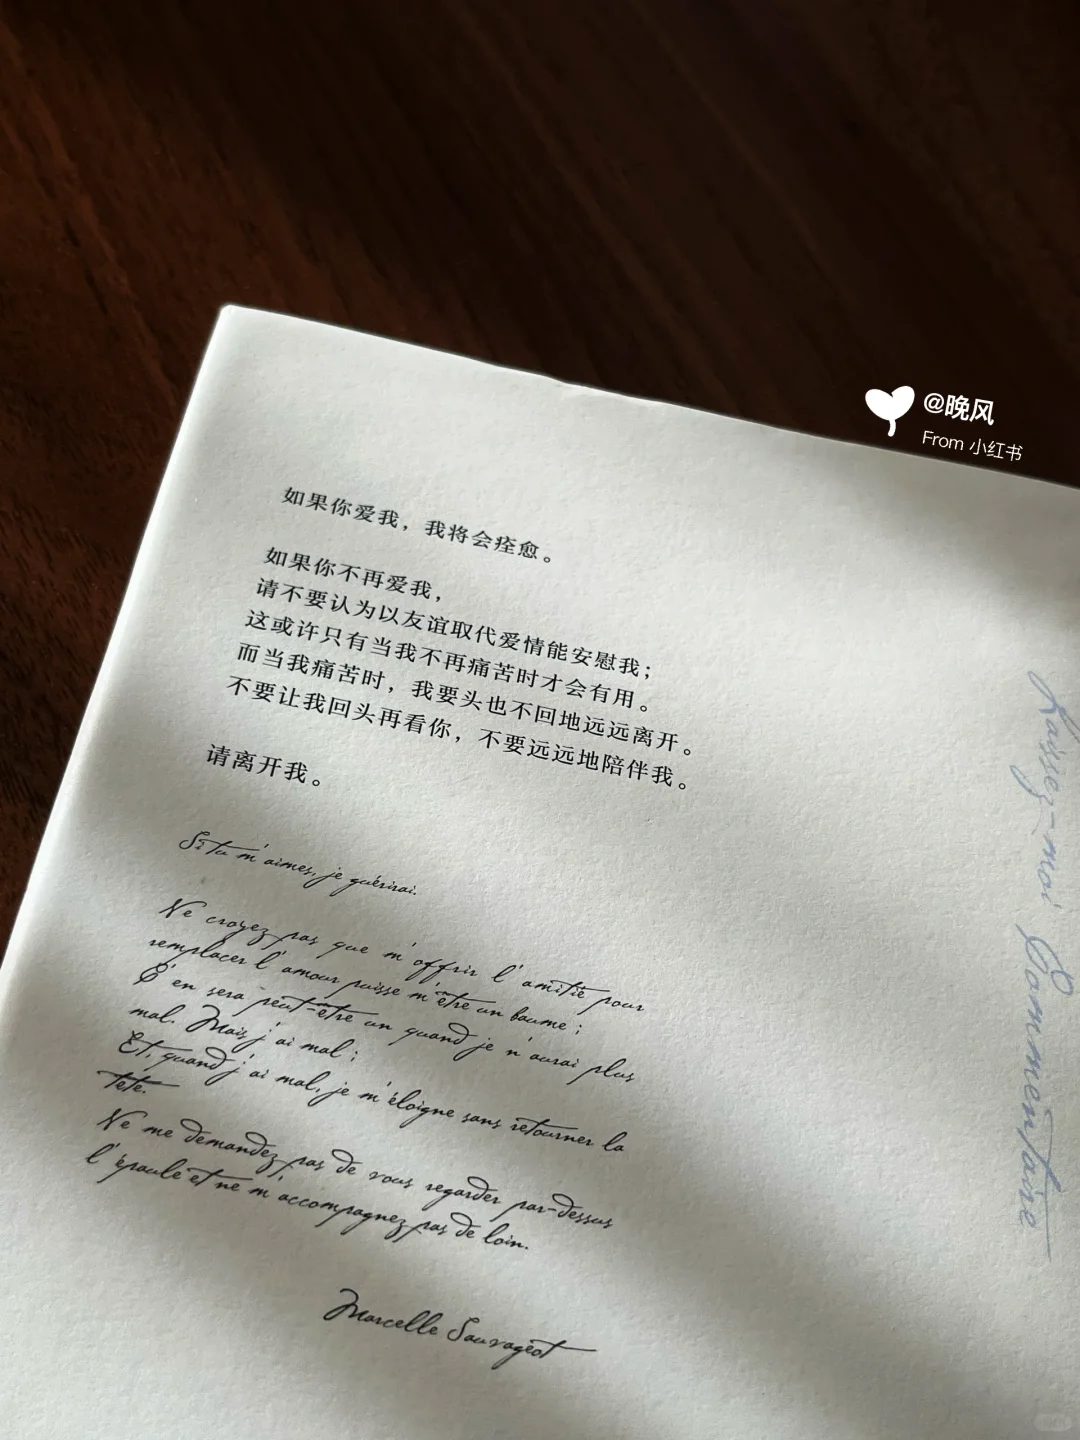 @晚风
From 小红书
如果你爱我，我将会痊愈。
如果你不再爱我，
请不要认为以友谊取代爱情能安慰我；
这或许只有当我不再痛苦时才会有用。
而当我痛苦时，我要头也不回地远远离开。
不要让我回头再看你，不要远远地陪伴我。
请离开我。
Si tu m'aimes, je guérirai.
Ne croyez pas que m'offrir l'amitié pour
remplacer l'amour puisse m'être un baume ;
C'en sera peut-être un quand je n'aurai plus
mal. Mais j'ai mal ;
Et, quand j'ai mal, je m'éloigne sans retourner la
tête.
Ne me demandez pas de vous regarder par-dessus
l'épaule et ne m'accompagnez pas de loin.
Marcelle Sauvageot
Laissez-moi Commentaire